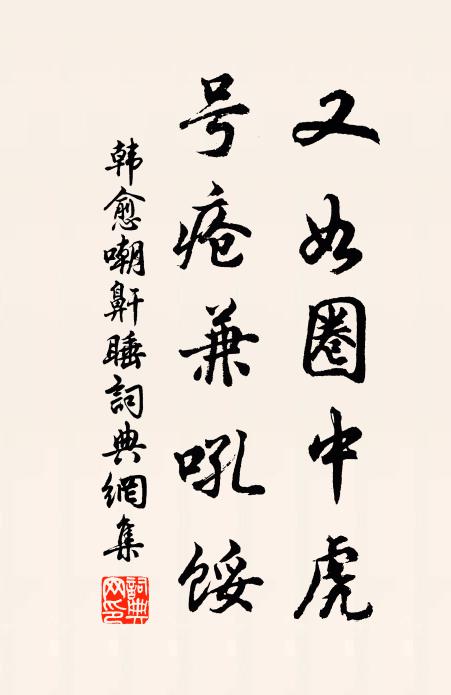 又如圈中虎
号疮兼吼馁
韩愈嘲鼾睡詞典網集
詞典网印